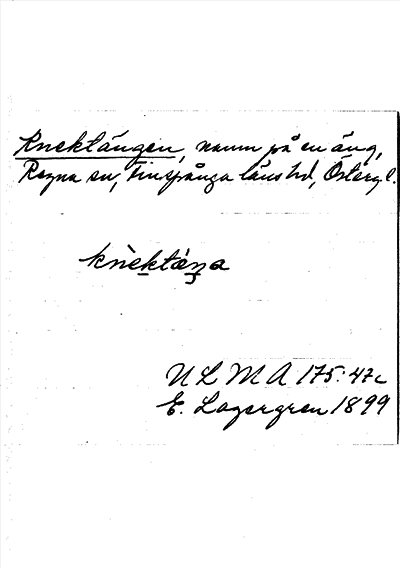 Knektängen, namn på en äng,
Regna sn, Finspånga läns hd, Österg. l.
knèktæŋa
U L M A 175:47c
E. Lagergren 1899